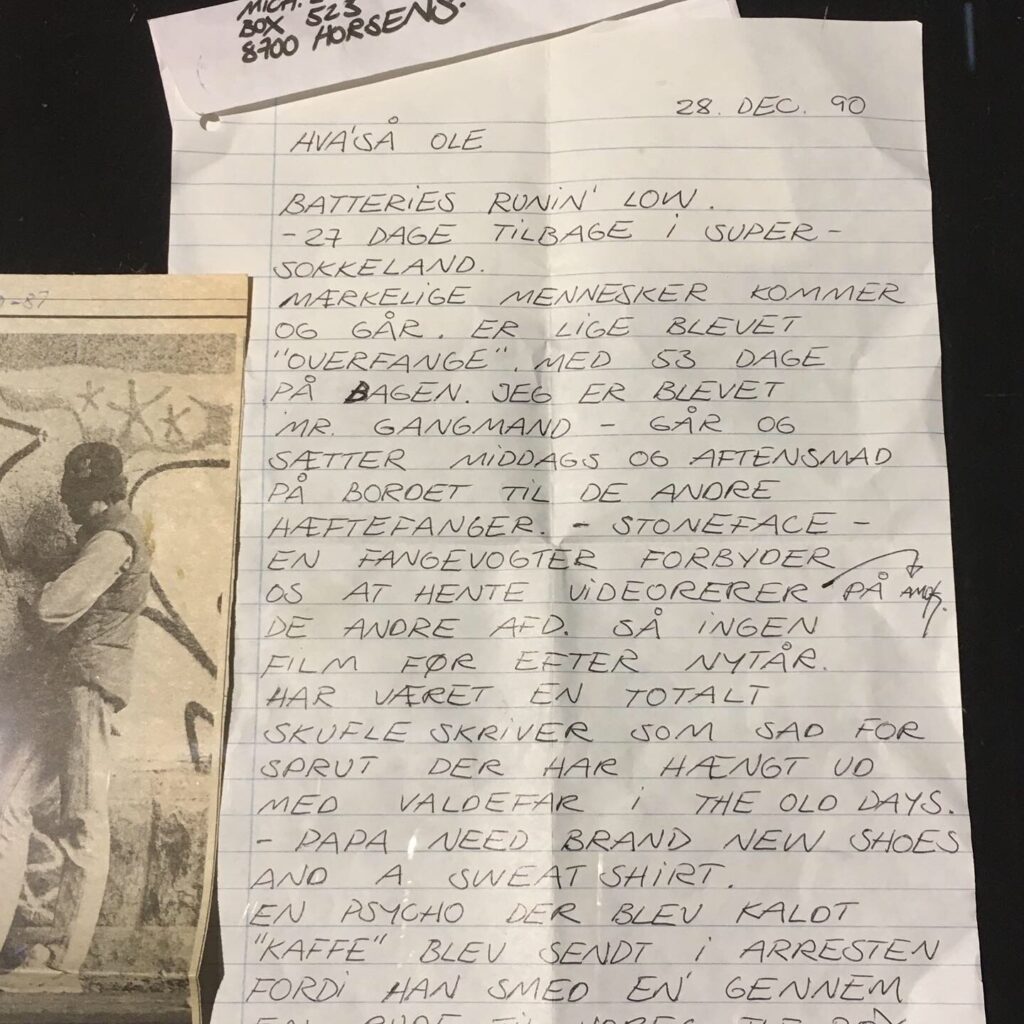 MICH.
BOX 523
8700 HORSENS.
28. DEC. 90
HVA'SÅ OLE
BATTERIES RUNIN' LOW.
- 27 DAGE TILBAGE I SUPER-
SOKKELAND.
MÆRKELIGE MENNESKER KOMMER
OG GÅR. ER LIGE BLEVET
"OVERFANGE". MED 53 DAGE
PÅ BAGEN. JEG ER BLEVET
MR. GANGMAND - GÅR OG
SÆTTER MIDDAGS OG AFTENSMAD
PÅ BORDET TIL DE ANDRE
HÆFTEFANGER. - STONEFACE -
EN FANGEVOGTER FORBYDER
OS AT HENTE VIDEORERER PÅ
DE ANDRE AFD. SÅ INGEN
FILM FØR EFTER NYTÅR.
HAR VÆRET EN TOTALT
SKUFLE SKRIVER SOM SAD FOR
SPRUT DER HAR HÆNGT UD
MED VALDEFAR I THE OLD DAYS.
- PAPA NEED BRAND NEW SHOES
AND A SWEATSHIRT.
EN PSYCHO DER BLEV KALDT
"KAFFE" BLEV SENDT I ARRESTEN
FORDI HAN SMED EN' GENNEM
-87